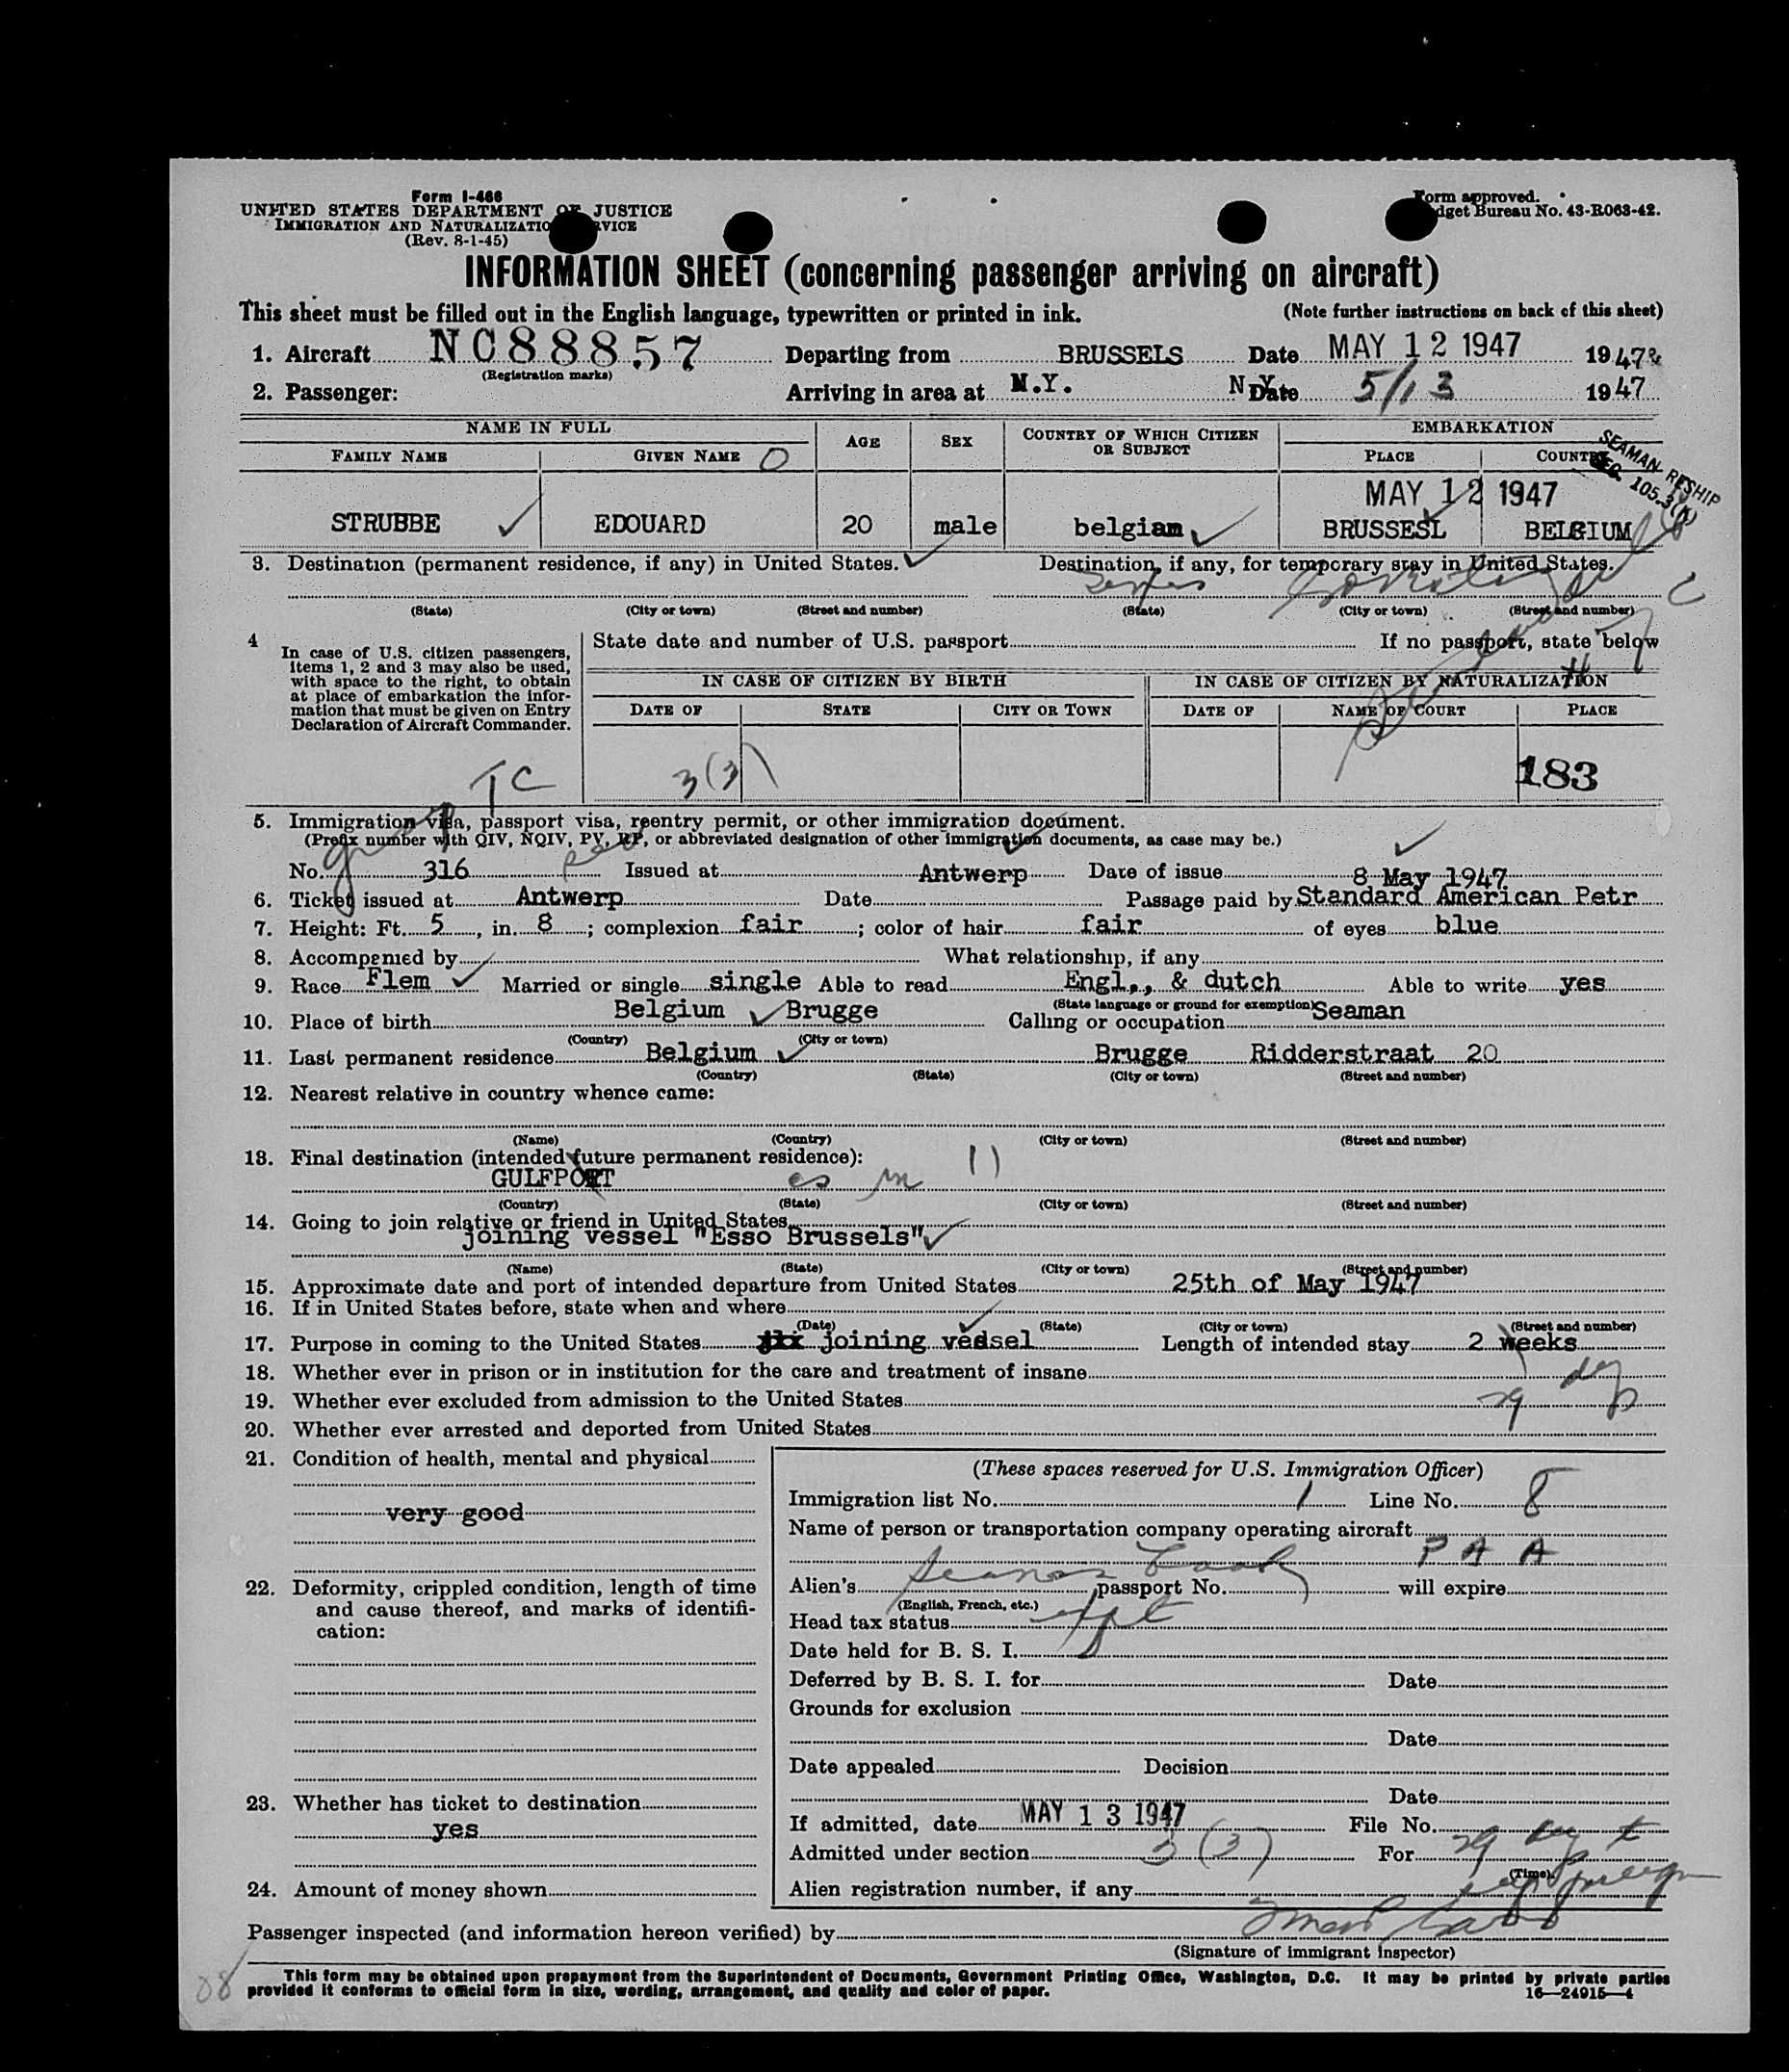 Form I-466
UNITED STATES DEPARTMENT OF JUSTICE
IMMIGRATION AND NATURALIZATION SERVICE
(Rev. 8-1-45)
Form approved.
Budget Bureau No. 43-R063-42.
INFORMATION SHEET (concerning passenger arriving on aircraft)
This sheet must be filled out in the English language, typewritten or printed in ink. (Note further instructions on back of this sheet)
1. Aircraft NC88857 Departing from BRUSSELS Date MAY 12 1947 1947
(Registration marks)
2. Passenger: Arriving in area at N.Y. N.Y. Date 5/13 1947
NAME IN FULL AGE SEX COUNTRY OF WHICH CITIZEN OR SUBJECT EMBARKATION
FAMILY NAME GIVEN NAME PLACE COUNTRY
SEAMAN RESHIP
SEC. 105.3(K)
MAY 12 1947
STRUBBE EDOUARD 20 male belgian BRUSSESL BELGIUM
3. Destination (permanent residence, if any) in United States. Destination, if any, for temporary stay in United States.
(State) (City or town) (Street and number) (State) (City or town) (Street and number)
4 In case of U.S. citizen passengers, items 1, 2 and 3 may also be used, with space to the right, to obtain at place of embarkation the information that must be given on Entry Declaration of Aircraft Commander.
State date and number of U.S. passport If no passport, state below
IN CASE OF CITIZEN BY BIRTH IN CASE OF CITIZEN BY NATURALIZATION
DATE OF STATE CITY OR TOWN DATE OF NAME OF COURT PLACE
TC 3(3) 183
5. Immigration visa, passport visa, reentry permit, or other immigration document.
(Prefix number with QIV, NQIV, PV, RP, or abbreviated designation of other immigration documents, as case may be.)
No. 316 Issued at Antwerp Date of issue 8 May 1947
6. Ticket issued at Antwerp Date Passage paid by Standard American Petr
7. Height: Ft. 5, in. 8; complexion fair; color of hair fair of eyes blue
8. Accompanied by What relationship, if any
9. Race Flem Married or single single Able to read Engl,, & dutch Able to write yes
(State language or ground for exemption)
10. Place of birth Belgium Brugge Calling or occupation Seaman
(Country) (City or town)
11. Last permanent residence Belgium Brugge Ridderstraat 20
(Country) (State) (City or town) (Street and number)
12. Nearest relative in country whence came:
(Name) (Country) (City or town) (Street and number)
13. Final destination (intended future permanent residence):
GULFPORT
(Country) (State) (City or town) (Street and number)
14. Going to join relative or friend in United States
joining vessel "Esso Brussels"
(Name) (State) (City or town) (Street and number)
15. Approximate date and port of intended departure from United States 25th of May 1947
16. If in United States before, state when and where
(Date) (State) (City or town) (Street and number)
17. Purpose in coming to the United States joining vessel Length of intended stay 2 weeks
18. Whether ever in prison or in institution for the care and treatment of insane
19. Whether ever excluded from admission to the United States
20. Whether ever arrested and deported from United States
21. Condition of health, mental and physical
very good
22. Deformity, crippled condition, length of time
and cause thereof, and marks of identifi-
cation:
23. Whether has ticket to destination
yes
24. Amount of money shown
(These spaces reserved for U.S. Immigration Officer)
Immigration list No. 1 Line No. 8
Name of person or transportation company operating aircraft
P A A
Alien's passport No. will expire
(English, French, etc.)
Head tax status
Date held for B. S. I.
Deferred by B. S. I. for Date
Grounds for exclusion
Date
Date appealed Decision
Date
If admitted, date MAY 13 1947 File No.
Admitted under section 3 (3) For 29
(Time)
Alien registration number, if any
Passenger inspected (and information hereon verified) by
(Signature of immigrant inspector)
08
This form may be obtained upon prepayment from the Superintendent of Documents, Government Printing Office, Washington, D.C. It may be printed by private parties
provided it conforms to official form in size, wording, arrangement, and quality and color of paper.
16—24915—4